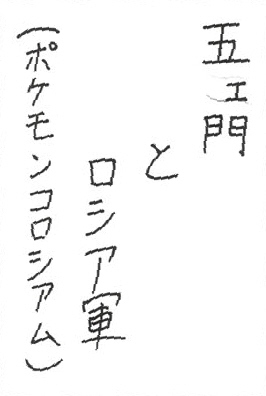 五ェ門
と
ロシア軍
(ポケモンコロシアム)